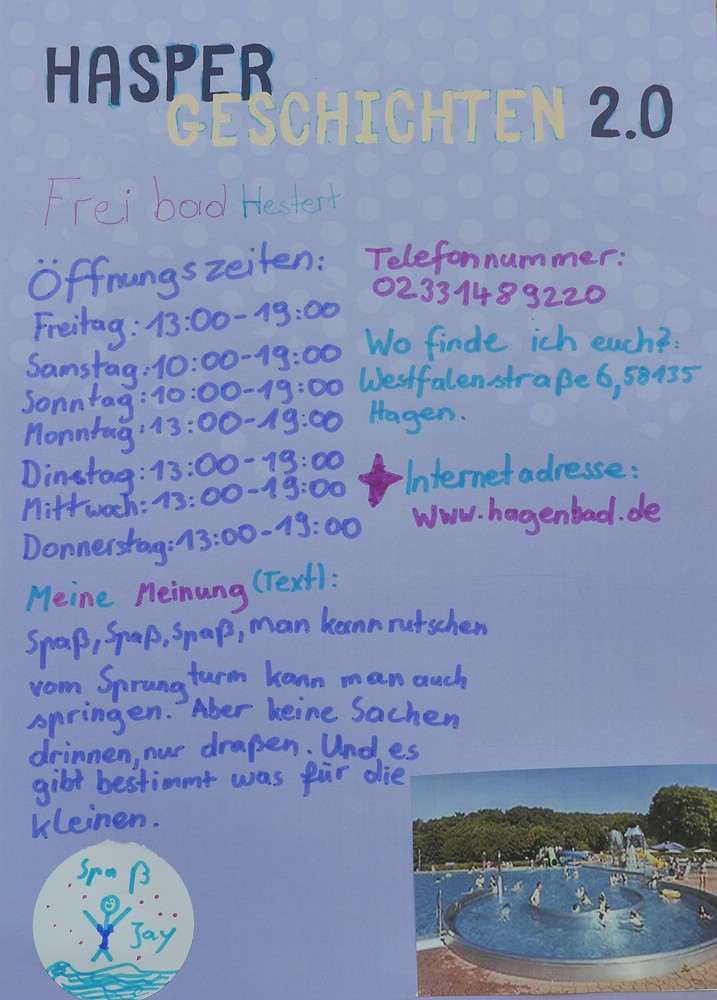 HASPER
GESCHICHTEN 2.0
Freibad Hestert
Öffnungszeiten:
Freitag: 13:00-19:00
Samstag: 10:00-19:00
Sonntag: 10:00-19:00
Monntag: 13:00-19:00
Dinstag: 13:00-19:00
Mittwoch: 13:00-19:00
Donnerstag: 13:00-19:00
Telefonnummer:
023314889220
Wo finde ich euch?:
Westfalenstraße 6, 58135
Hagen.
Internetadresse:
www.hagenbad.de
Meine Meinung (Text):
Spaß, Spaß, Spaß, man kann rutschen
vom Sprungturm kann man auch
springen. Aber keine Sachen
drinnen, nur draßen. Und es
gibt bestimmt was für die
kleinen.
Spaß
Jay